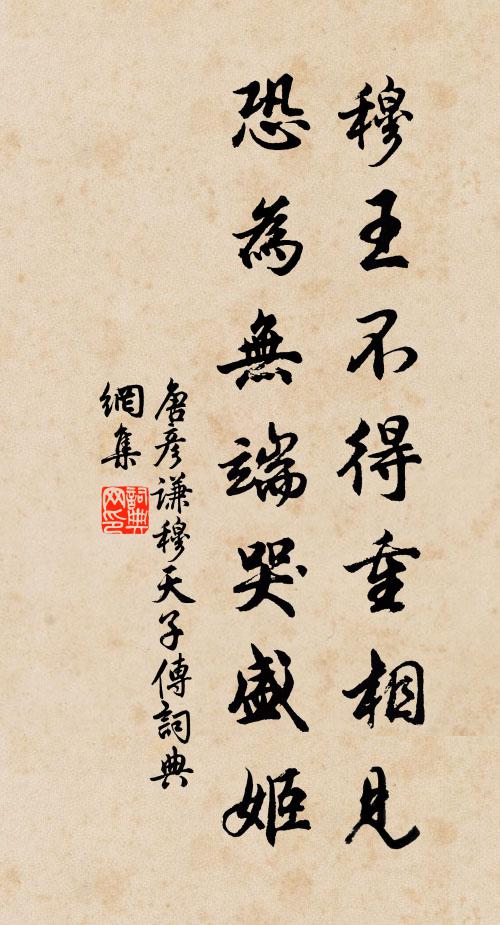 穆王不得重相見
恐為無端哭盛姬
唐彥謙穆天子傳詞典
網集
詞典
网印